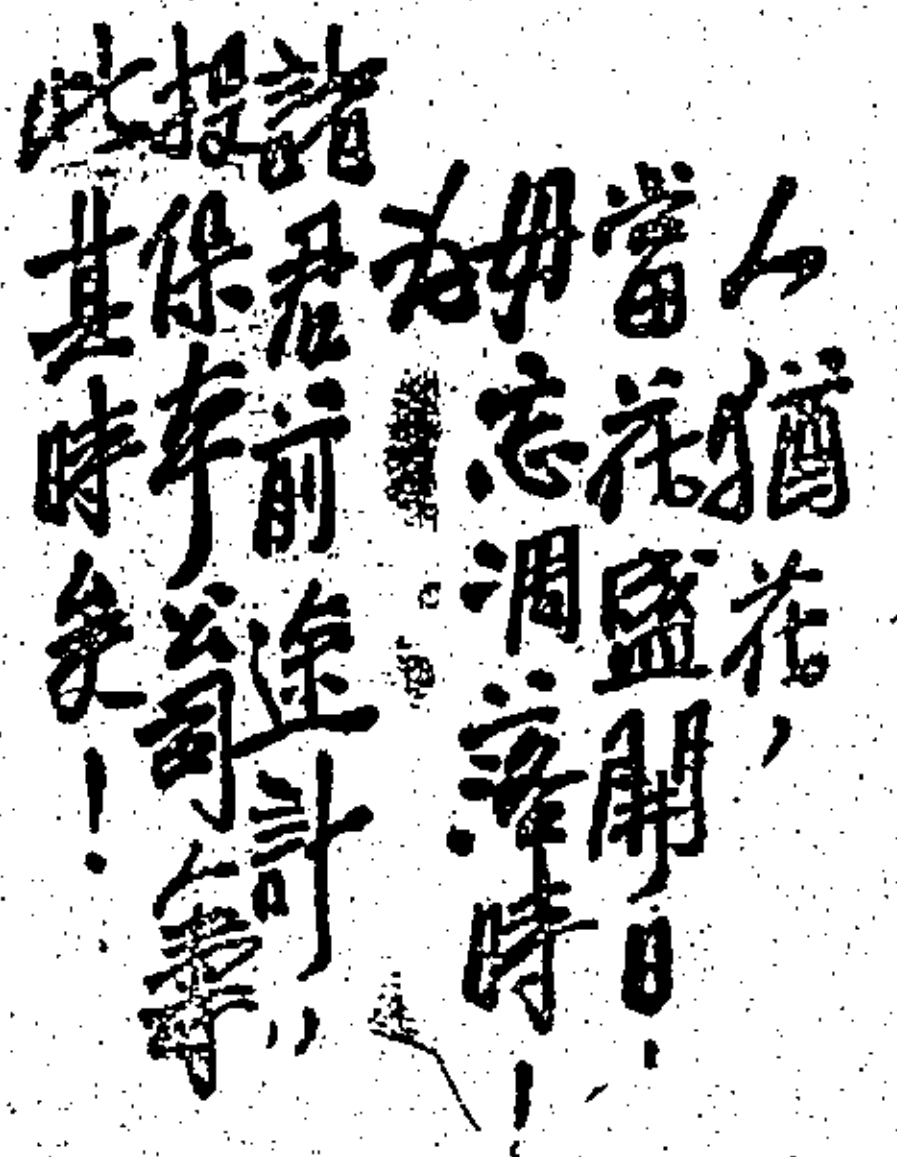 人猶花，
當花盛開日！
毋忘凋落時！
為
諸君前途計，
投保本公司人壽
此其時矣！